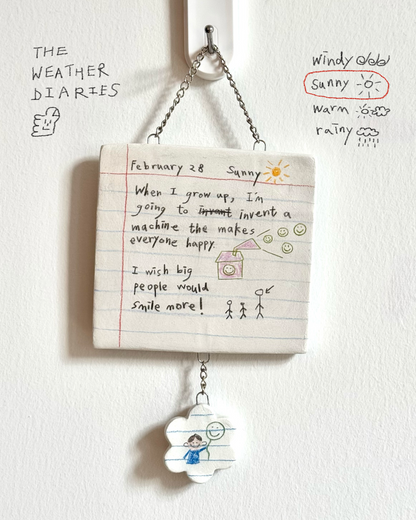 THE
WEATHER
DIARIES
windy
sunny
warm
rainy
February 28 Sunny
When I grow up, I'm
going to invant invent a
machine the makes
everyone happy
I wish big
people would
smile more!